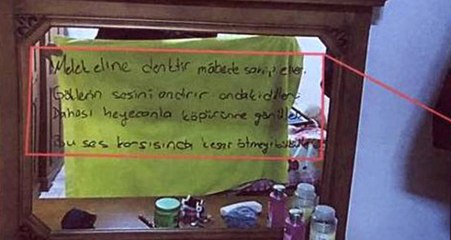 Melek eline denktir mabede sahip eller.
Göklerin sesini andırır ondaki diller
Dahası heyecanla köpürünce gönüller
bu ses karşısında keser ötmeyi